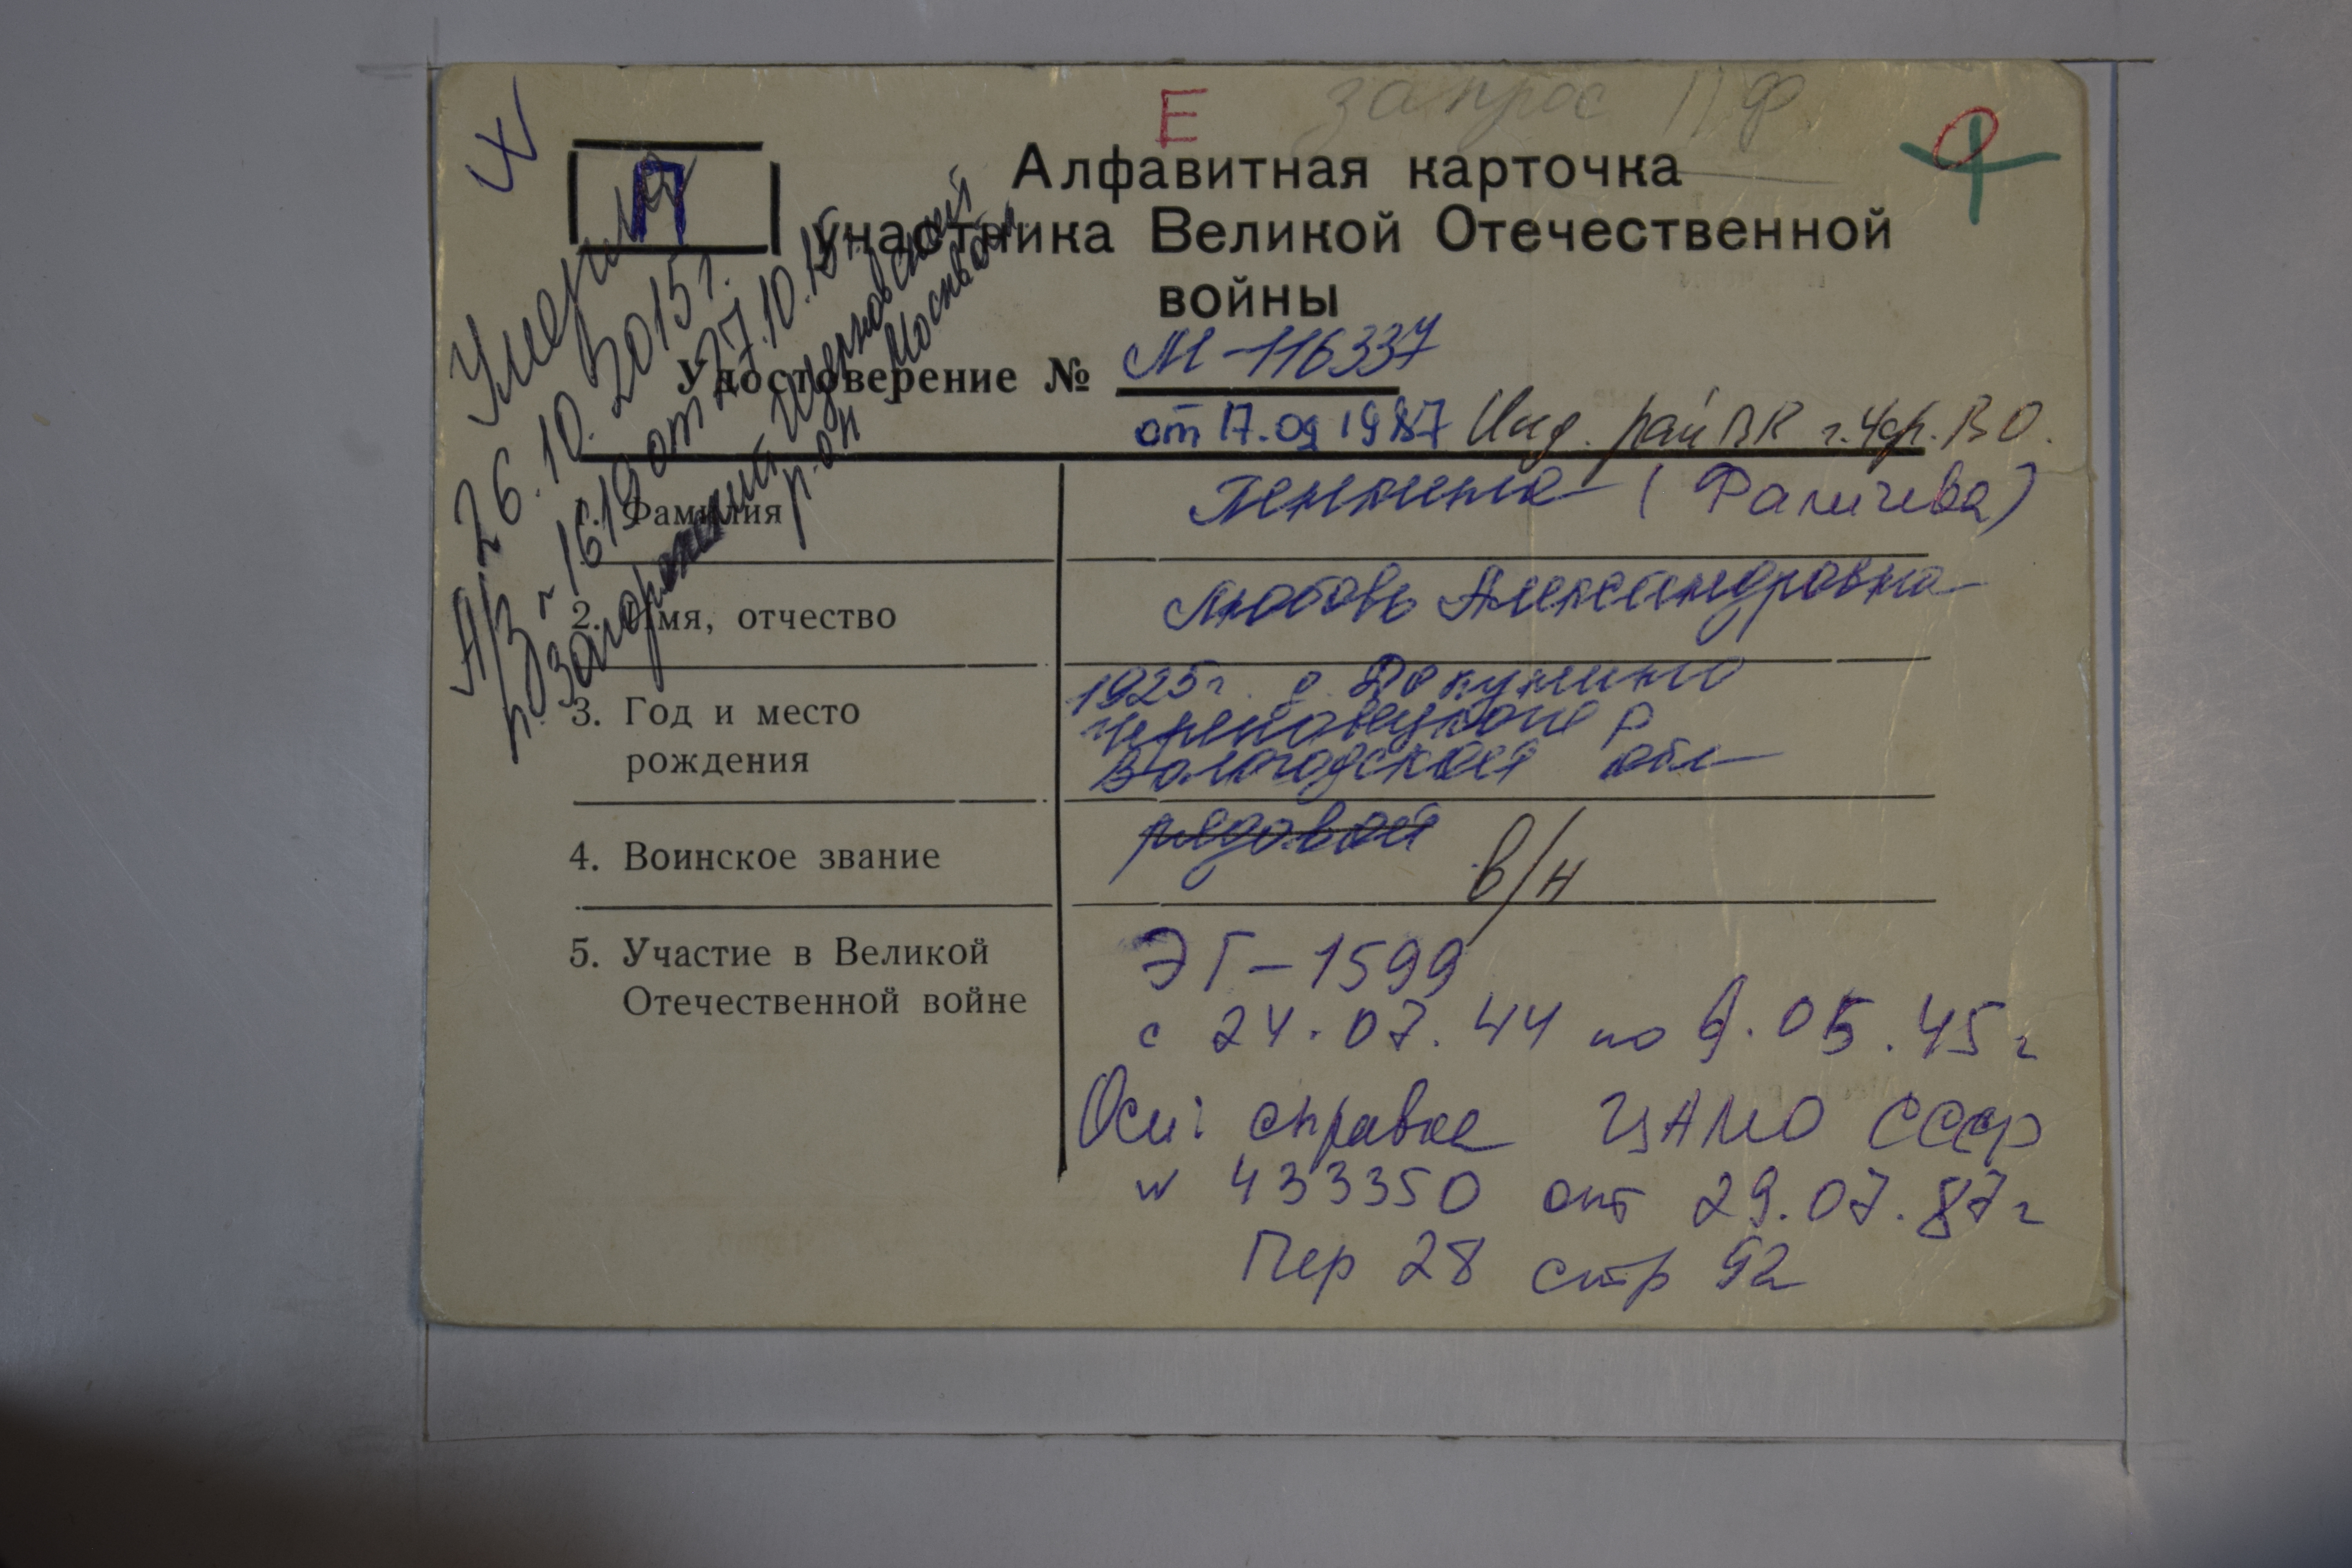 Е запрос ПФ
П
Алфавитная карточка
участника Великой Отечественной
войны
Удостоверение № М-116337
от 17.09 1987 Инд. рай ВК г. Чер. ВО.
Умерла
26.10.2015г.
А/З № 1619 от 27.10.15г.
р-он
1. Фамилия (Фаличева)
2. Имя, отчество Любовь Александровна
3. Год и место
рождения
1925г. д.
Череповецкого р
Вологодской обл
4. Воинское звание рядовой в/н
5. Участие в Великой
Отечественной войне
ЭГ-1599
с 24.07.44 по 9.05.45г
Осн: справка ЦАМО СССР
№ 433350 от 29.07.87г
Пер 28 стр 92